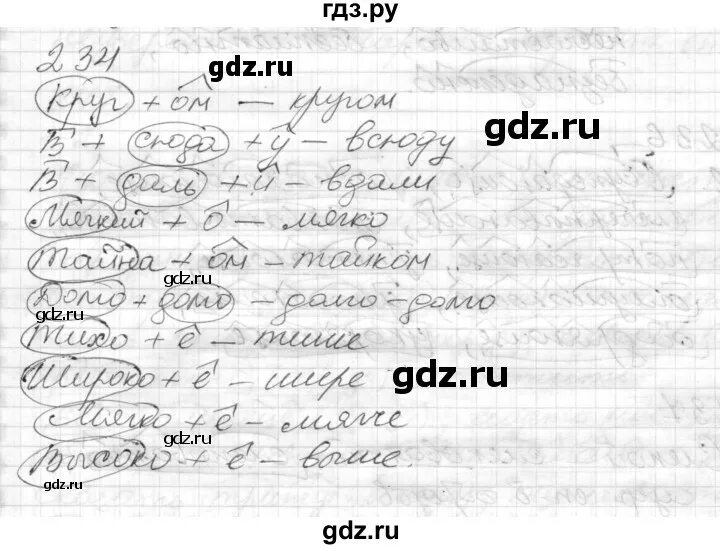 гдз.ру
234
gdz.ru
Круг + ом – кругом
В + сюда + у – всюду
gdz.ru
В + даль + и – вдали
Мягкий + о – мягко
Тайна + ом – тайком
gdz.ru
Долго + долго – долго-долго
Тихо + е – тише
Широко + е – шире
gdz.ru
Мягко + е – мягче
gdz.ru
Высоко + е – выше.
gdz.ru